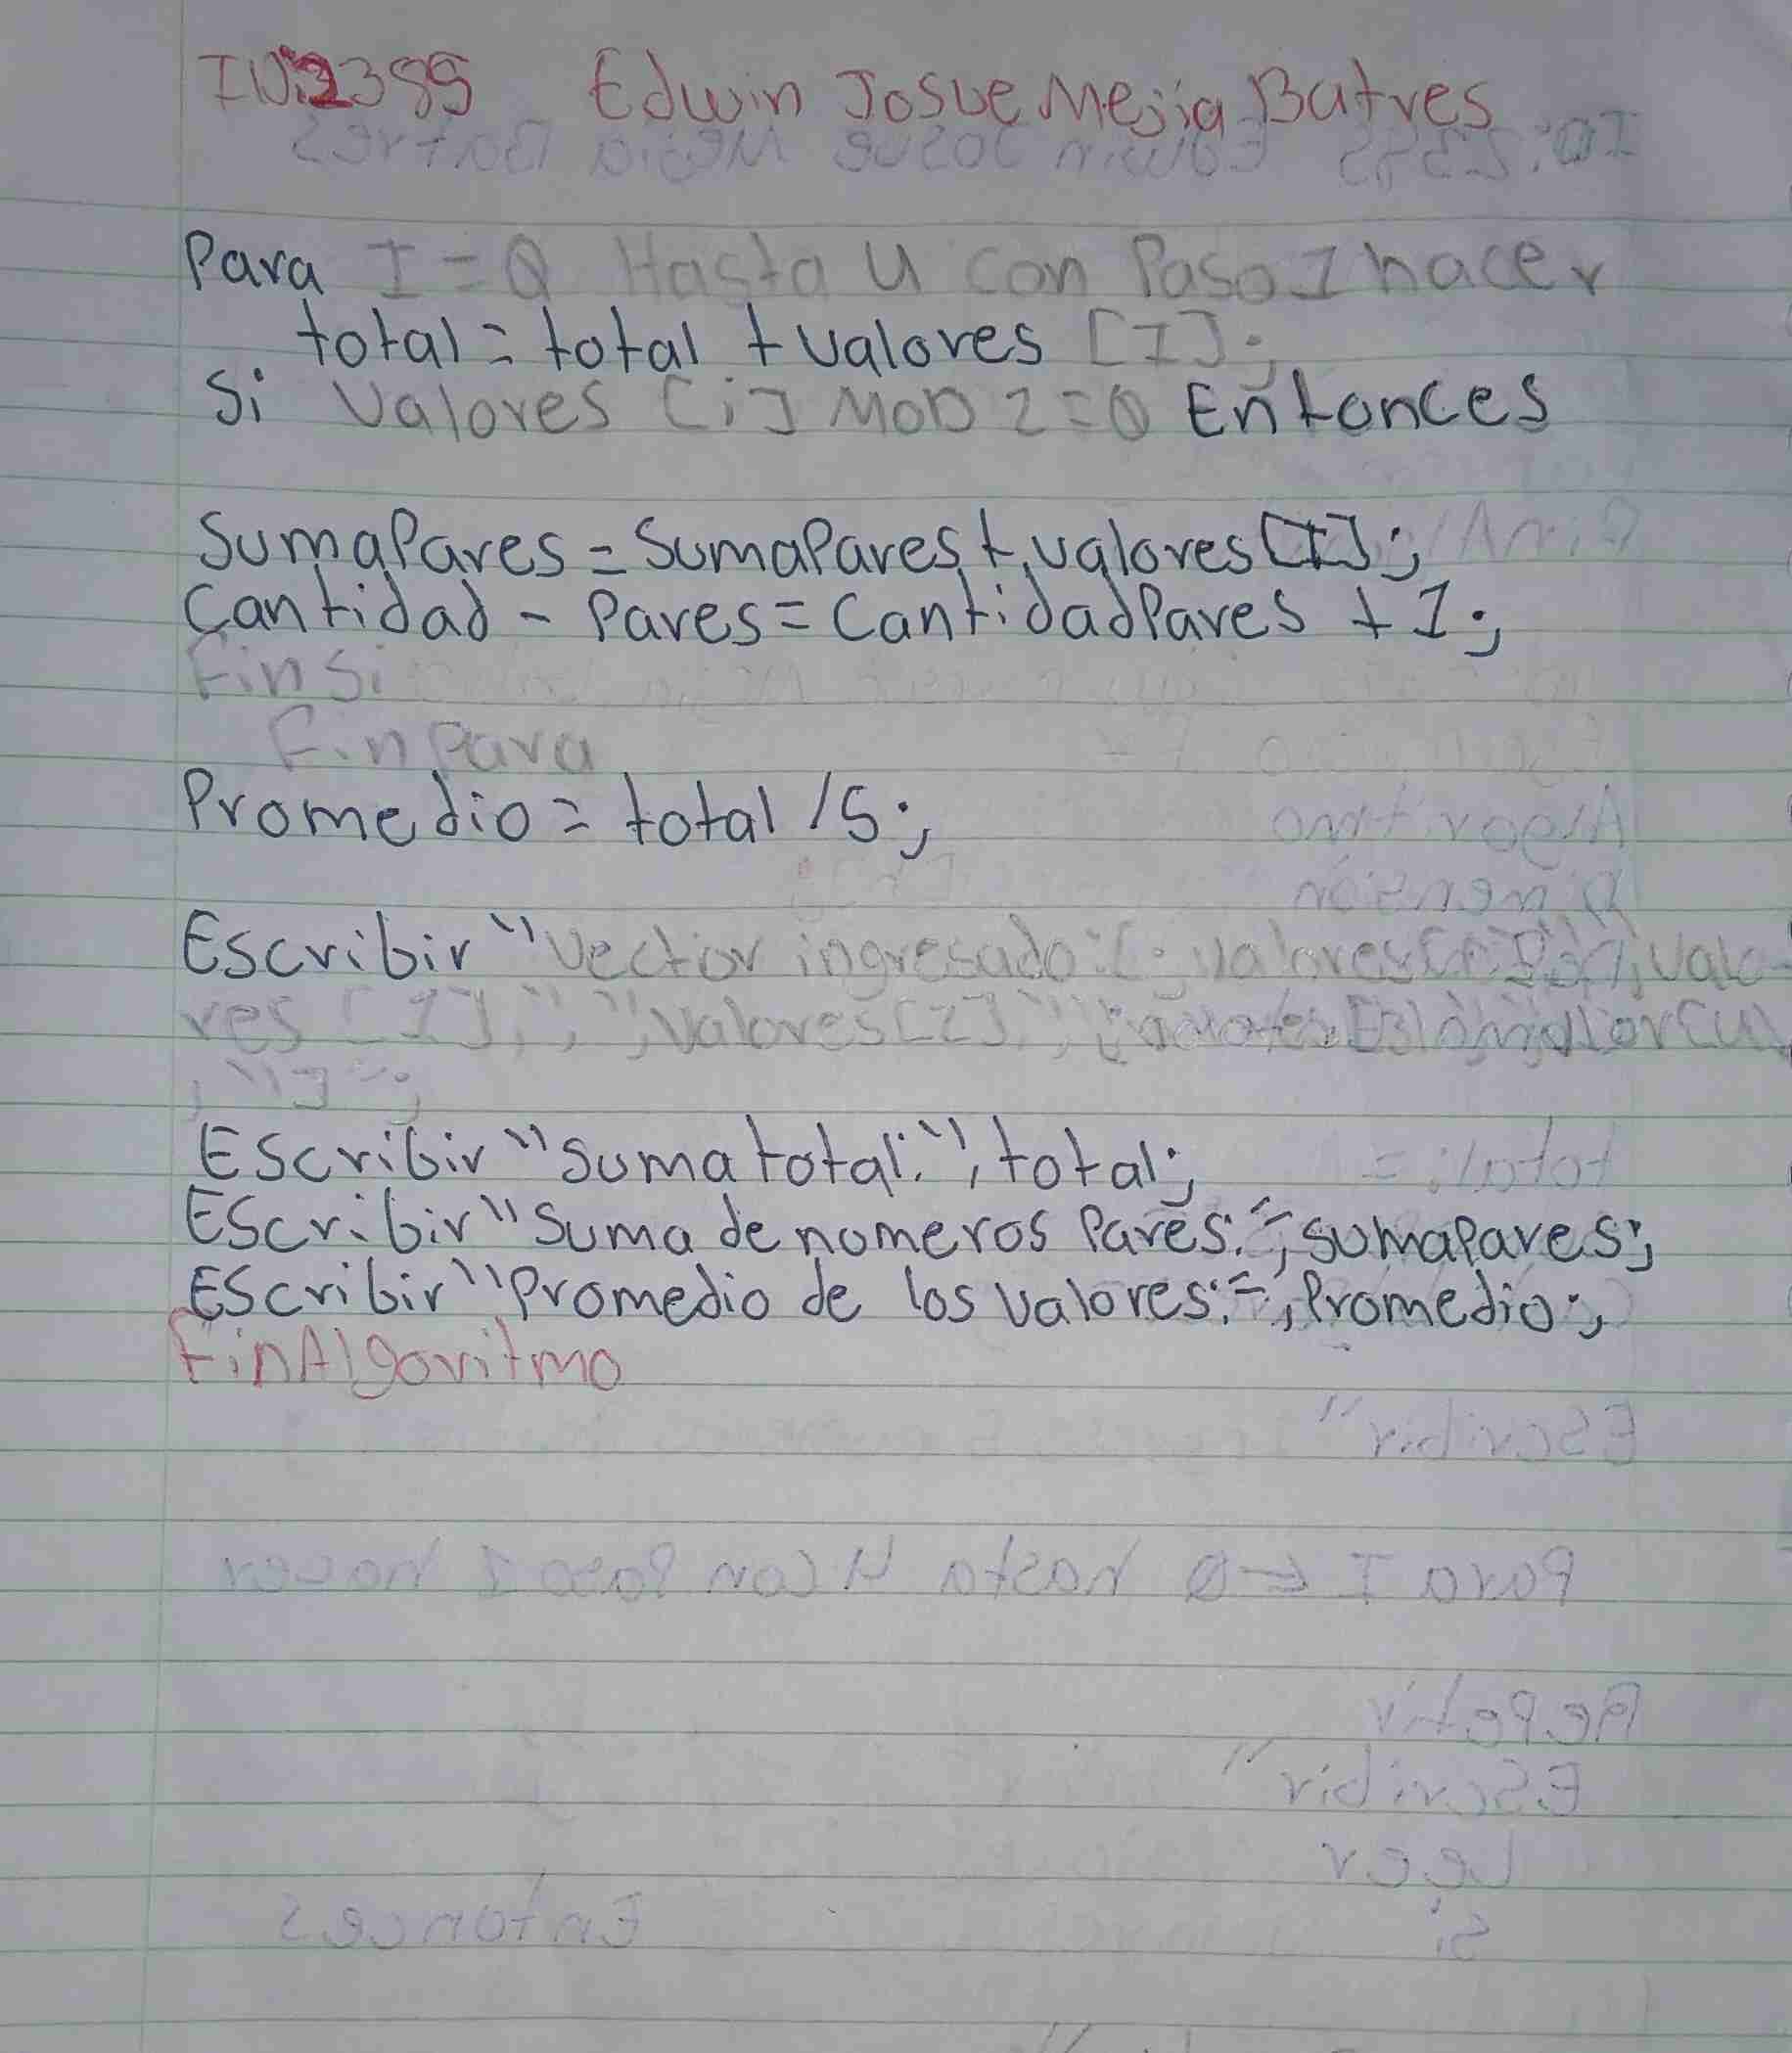 ID:2395 Edwin Josue Mejia Batres
Para I = 0 Hasta 4 con Paso 1 hacer
total = total + valores [I];
Si Valores [i] MOD 2 = 0 Entonces
SumaPares = SumaPares + valores [I];
Cantidad - Pares = CantidadPares + 1;
Finsi
FinPara
Promedio = total /5;
Escribir "Vector ingresado: [; valores valo-
res [1], ", ", Valores [2]
, "]";
Escribir "Suma total:", total;
Escribir "Suma de nomeros Pares:", sumaPares;
Escribir "Promedio de los valores:", Promedio;
FinAlgoritmo